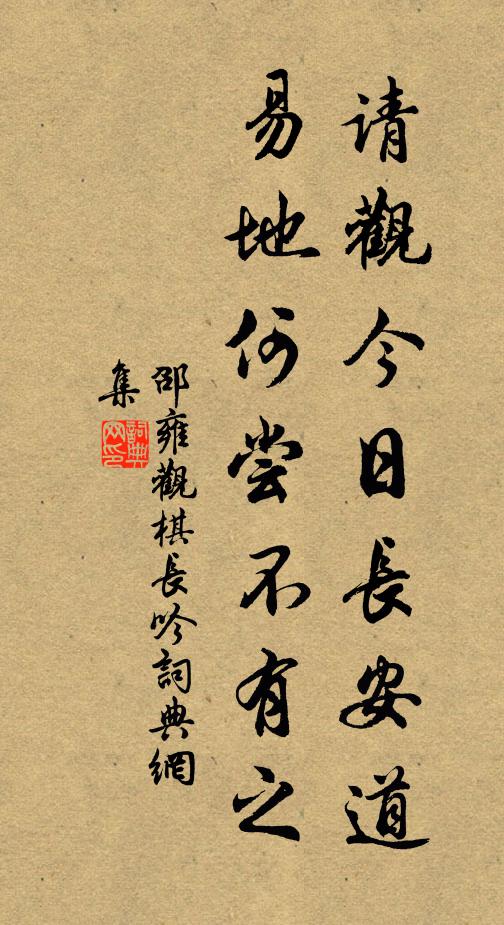 请觀今日長安道
易地何尝不有之
邵雍觀棋長吟詞典網
集
詞典
网印